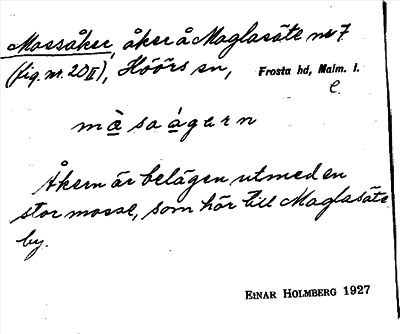 Mossåker, åker å Maglasäte nr 7
(fig. nr. 20 II), Höörs sn, Frosta hd, Malm. l.
e.
mà̱sa á̱gern
Åkern är belägen utmed en
stor mosse, som hör till Maglasäte
by.
EINAR HOLMBERG 1927